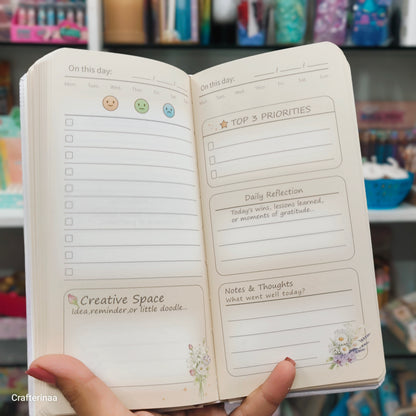 On this day: __/__/__
Mon. Tues. Wed. Thu. Fri. Sat. Sun.
Creative Space
Idea,reminder,or little doodle...
On this day: __/__/__
Mon. Tues. Wed. Thu. Fri. Sat. Sun.
TOP 3 PRIORITIES
Daily Reflection
Today's wins, lessons learned,
or moments of gratitude...
Notes & Thoughts
What went well today?
Crafterinaa